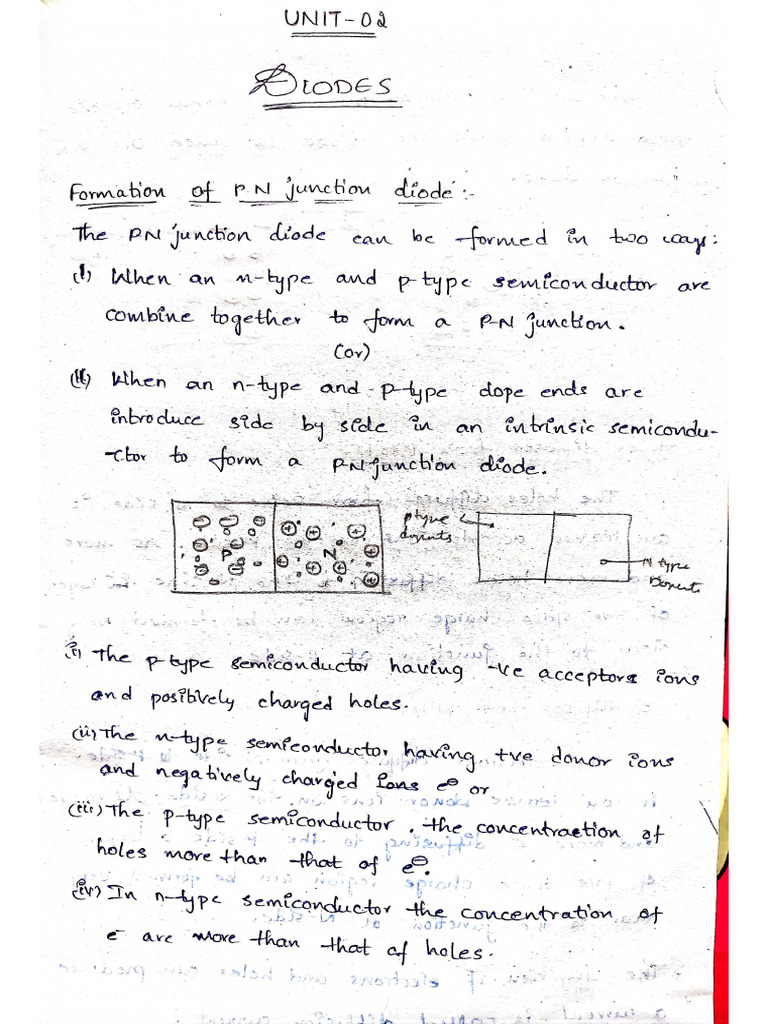 UNIT-02
DIODES
Formation of P.N junction diode:-
The PN junction diode can be formed in two ways:
(i) When an n-type and p-type semiconductor are
combine together to form a P-N junction.
(or)
(ii) When an n-type and p-type dope ends are
introduce side by side in an intrinsic semicondu-
-ctor to form a PN junction diode.
P N
ptype
dopents
N type
Dopent
i) The p-type semiconductor having -ve acceptors ions
and positively charged holes.
(ii) The n-type semiconductor having +ve donor ions
and negatively charged ions e⊖ or
(iii) The p-type semiconductor. the concentraction of
holes more than that of e⊖.
(iv) In n-type semiconductor the concentration of
e- are more than that of holes.